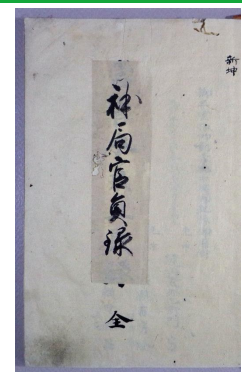 新坤
神局官員録
全